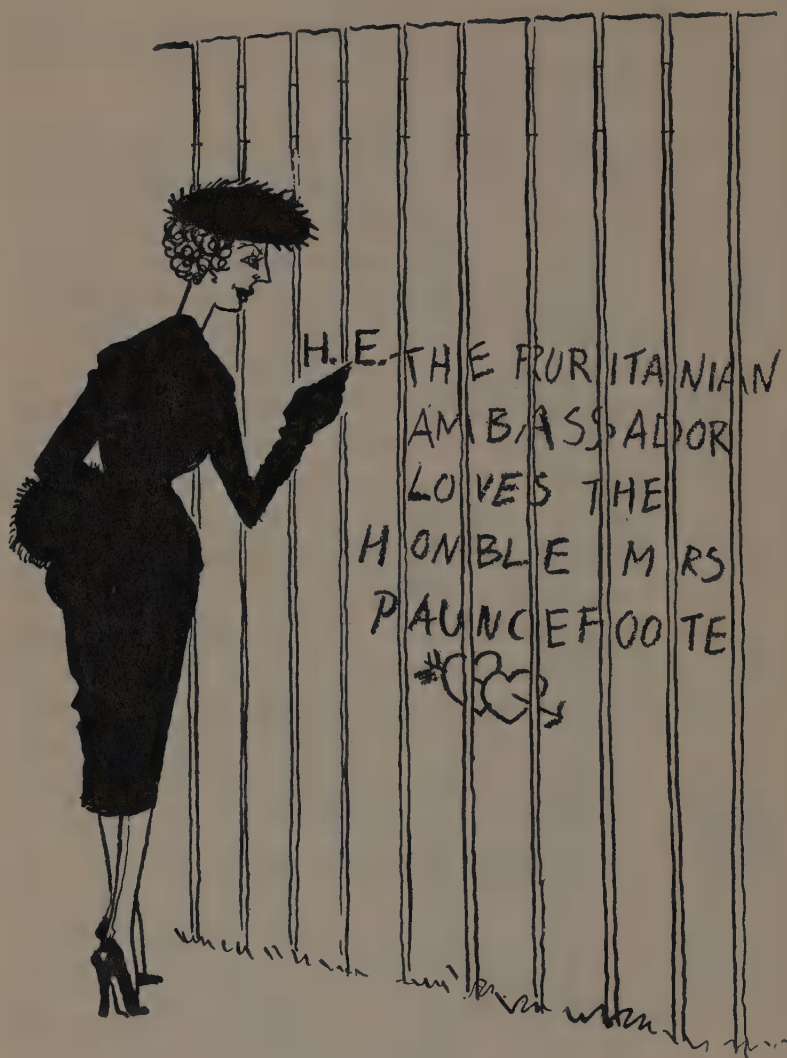 H.E. THE RURITANIAN
AMBASSADOR
LOVES THE
HONBLE MRS
PAUNCEFOOTE